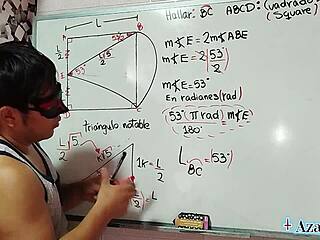 Hallar: BC ABCD: (Cuadrado
(Square)
L
A
B
53°/2
L√5/2
E
53°
D
C
m∢E = 2m∢ABE
m∢E = 2(53°/2)
m∢E = 53°
En radianes(rad)
(53°)(π rad) = m∢E
180°
Triángulo notable
L/2 √5
k√5
1k = L/2
L BC = (53°)
+ Aza